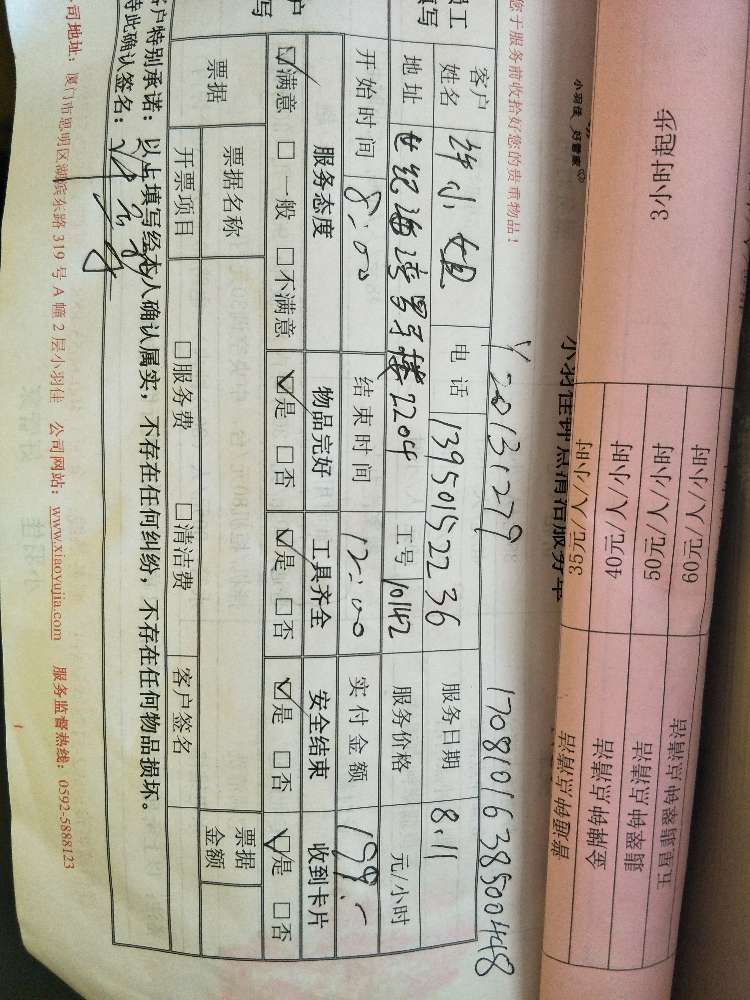 您于服务前收拾好您的贵重物品！
小羽佳 好管家
Y2013.1279
1708101638500448
客户姓名 许小姐 电话 13950152236 服务日期 8.11
地址 世纪海湾4号楼2204 工号 10142 服务价格 元/小时
开始时间 8:00 结束时间 12:00 实付金额 199.-
服务态度 物品完好 工具齐全 安全结束 收到卡片
☑满意 □一般 □不满意 ☑是 □否 ☑是 □否 ☑是 □否 ☑是 □否
票据 票据名称 票据金额
开票项目 □服务费 □清洁费 客户签名
客户特别承诺：以上填写经本人确认属实，不存在任何纠纷，不存在任何物品损坏。
特此确认签名：
公司地址：厦门市思明区湖滨东路 319 号 A 幢 2 层小羽佳 公司网站：www.xiaoyujia.com 服务监督热线：0592-5888123
3小时起步
35元/人/小时
40元/人/小时 金牌钟点清洁
50元/人/小时 翡翠钟点清洁
60元/人/小时